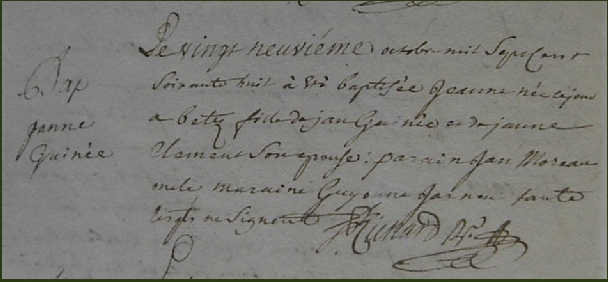 Bap
janne
Guinée
Le vingt neuviéme octobre mil Sept Cent
Soixante huit à été baptisée Jeanne née le jour
a betz fille de jan Guinée et de jeanne
Clement Son epouse : parain Jan Moreau
oncle maraine Guyonne Jarneu tante
lesqls ne Signent